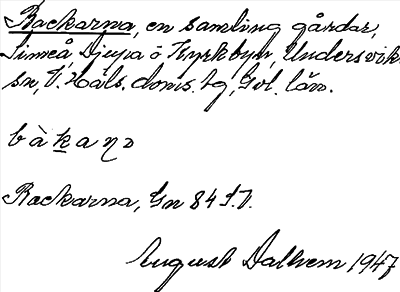 Backarna, en samling gårdar,
Linneå, Djupa o Kyrkbyn, Undersvik
sn, V. Häls. doms. tg, Gvl. län.
bàkaŋɔ
Backarna, Gn 84 S.V.
August Dalhem 1947